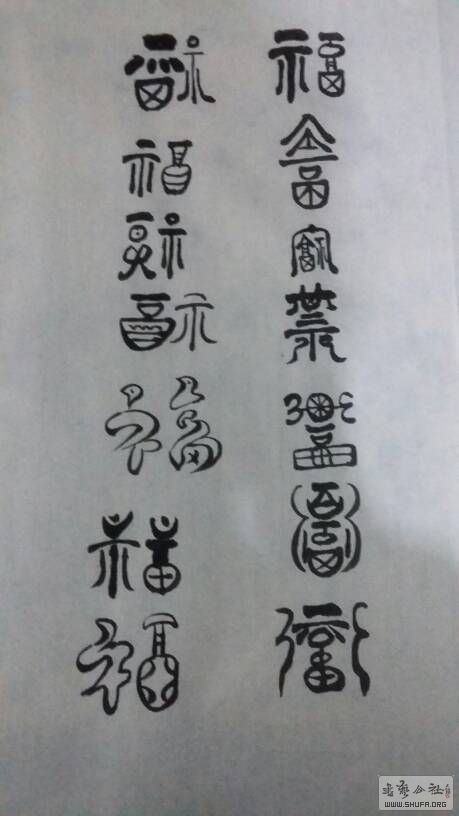 福福福福福福福
福福福福福福福
WWW.SHUFA.ORG